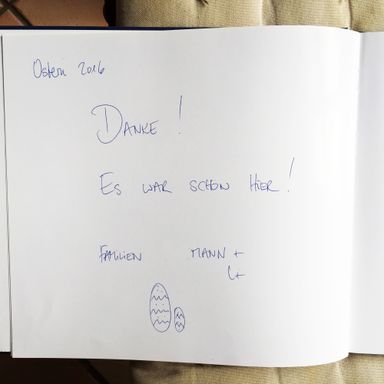 Ostern 2016
DANKE!
ES WAR SCHÖN HIER!
FAMILIEN MANN +